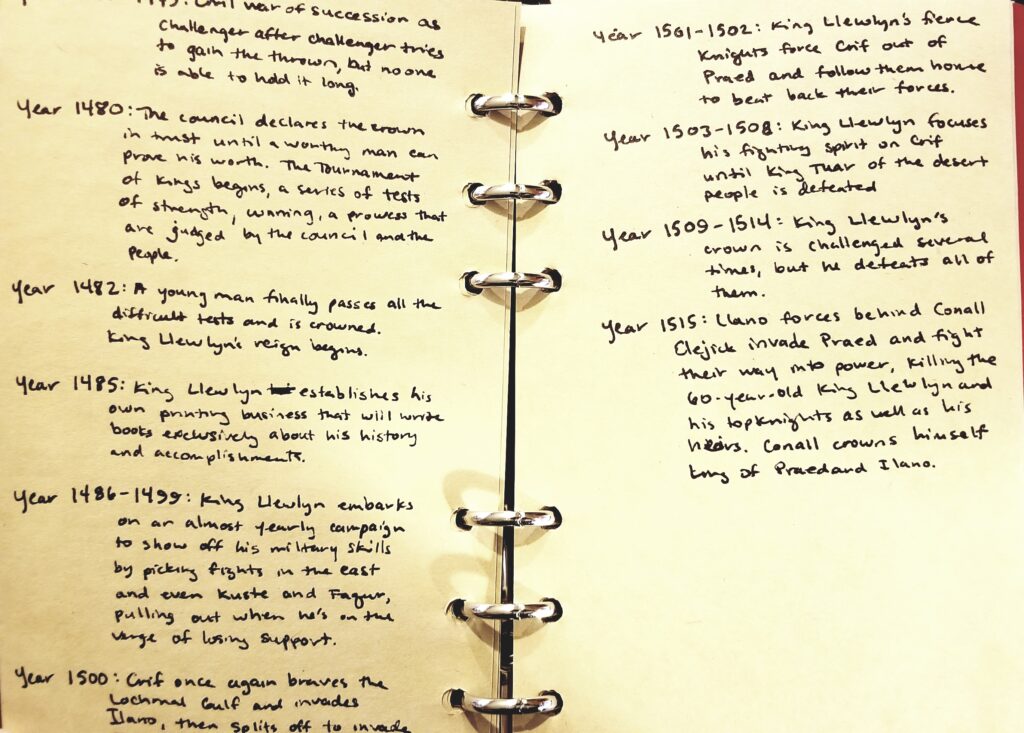 1479: Civil war of succession as
challenger after challenger tries
to gain the thrown, but no one
is able to hold it long.
Year 1480: The council declares the crown
in trust until a worthy man can
prove his worth. The Tournament
of Kings begins, a series of tests
of strength, warring, a prowess that
are judged by the council and the
people.
Year 1482: A young man finally passes all the
difficult tests and is crowned.
King Llewlyn's reign begins.
Year 1485: King Llewlyn establishes his
own printing business that will write
books exclusively about his history
and accomplishments.
Year 1486-1499: King Llewlyn embarks
on an almost yearly campaign
to show off his military skills
by picking fights in the east
and even Kuste and Fagur,
pulling out when he's on the
verge of losing support.
Year 1500: Crif once again braves the
Lochmal Gulf and invades
Ilano, then splits off to invade
Year 1501-1502: King Llewlyn's fierce
Knights force Crif out of
Praed and follow them home
to beat back their forces.
Year 1503-1508: King Llewlyn focuses
his fighting spirit on Crif
until King Thar of the desert
people is defeated
Year 1509-1514: King Llewlyn's
crown is challenged several
times, but he defeats all of
them.
Year 1515: Llano forces behind Conall
Elejick invade Praed and fight
their way into power, killing the
60-year-old King Llewlyn and
his top knights as well as his
heirs. Conall crowns himself
King of Praed and Ilano.